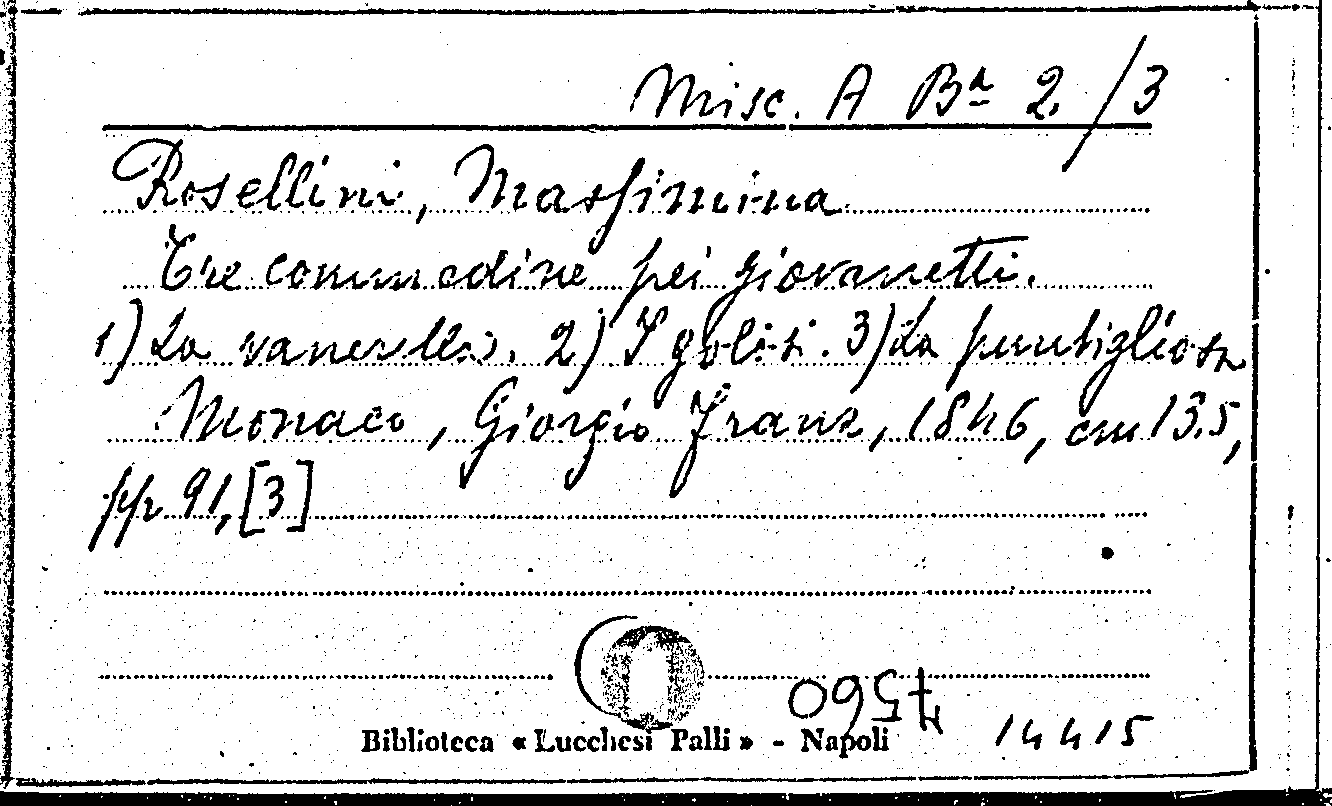 Misc. A Bª 2 /3
Rosellini, Massimina
Tre commedine pei giovanetti.
1) La vanerella. 2) I golosi. 3) La puntigliosa
Monaco, Giorgio Franz, 1846, cm 13.5,
pp 91, [3]
14415
Biblioteca « Lucchesi Palli » - Napoli